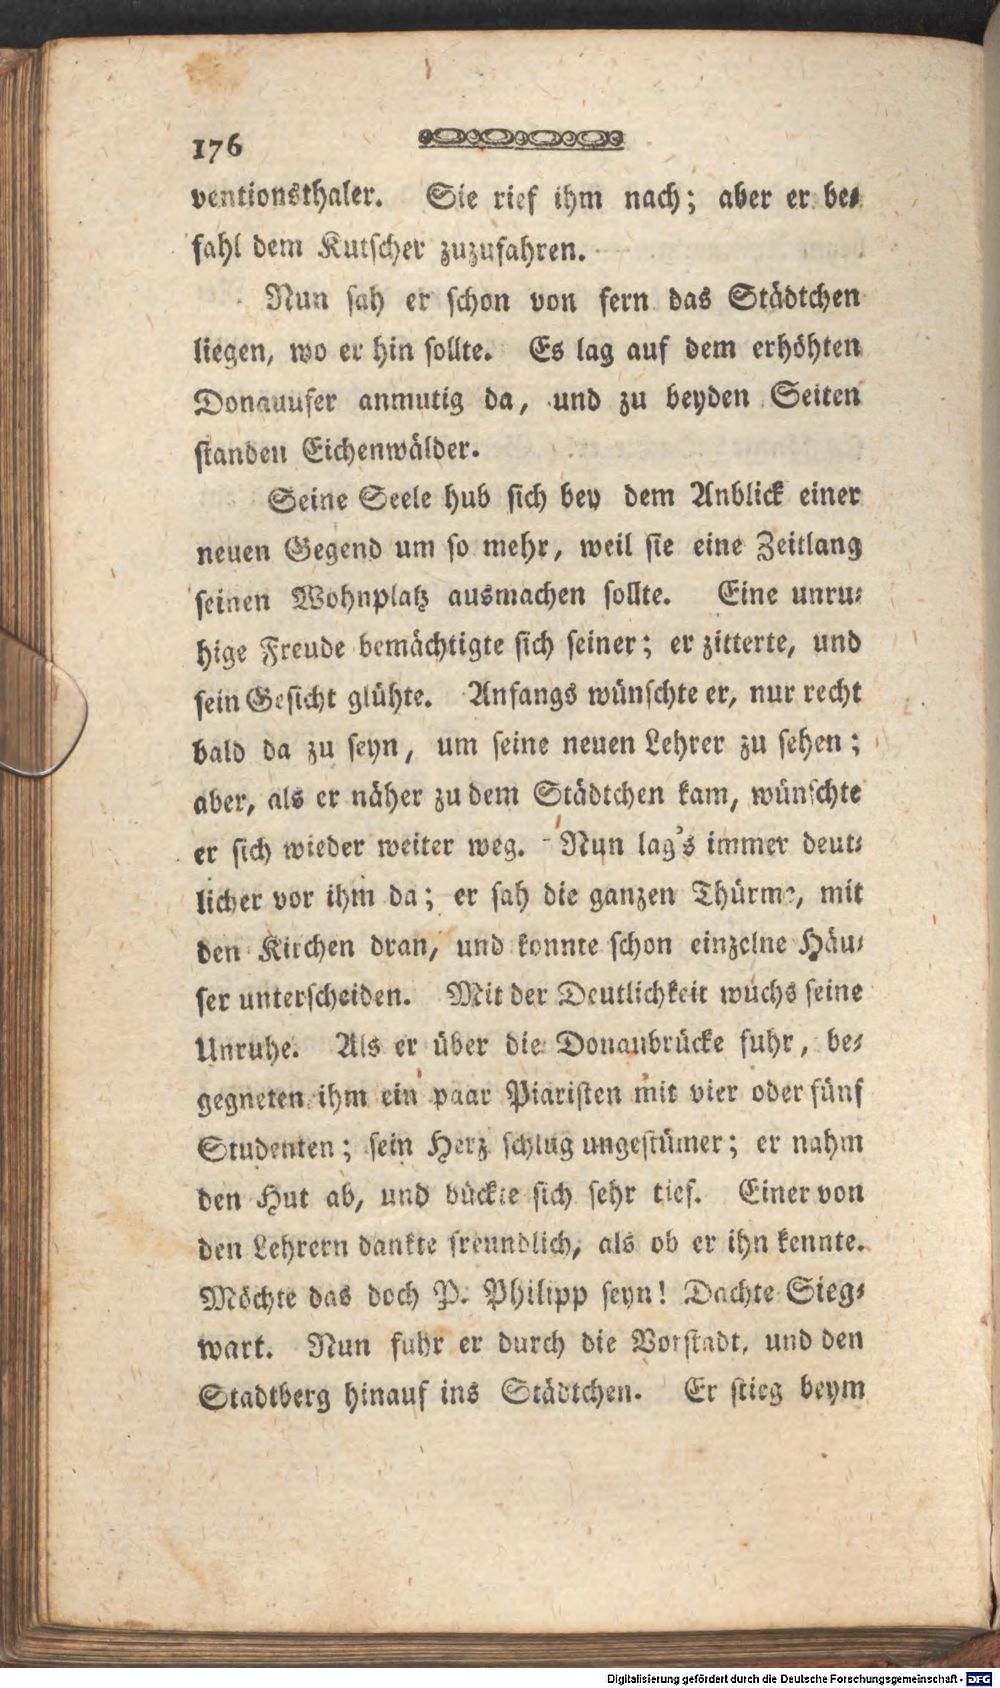 176
ventionsthaler. Sie rief ihm nach; aber er be⸗
fahl dem Kutscher zuzufahren.
Nun sah er schon von fern das Städtchen
liegen, wo er hin sollte. Es lag auf dem erhöhten
Donauufer anmutig da, und zu beyden Seiten
standen Eichenwälder.
Seine Seele hub sich bey dem Anblick einer
neuen Gegend um so mehr, weil sie eine Zeitlang
seinen Wohnplatz ausmachen sollte. Eine unru⸗
hige Freude bemächtigte sich seiner; er zitterte, und
sein Gesicht glühte. Anfangs wünschte er, nur recht
bald da zu seyn, um seine neuen Lehrer zu sehen;
aber, als er näher zu dem Städtchen kam, wünschte
er sich wieder weiter weg. Nun lag's immer deut⸗
licher vor ihm da; er sah die ganzen Thürme, mit
den Kirchen dran, und konnte schon einzelne Häu⸗
ser unterscheiden. Mit der Deutlichkeit wuchs seine
Unruhe. Als er über die Donaubrücke fuhr, be⸗
gegneten ihm ein paar Piaristen mit vier oder fünf
Studenten; sein Herz schlug ungestümer; er nahm
den Hut ab, und bückte sich sehr tief. Einer von
den Lehrern dankte freundlich, als ob er ihn kennte.
Möchte das doch P. Philipp seyn! Dachte Sieg⸗
wart. Nun fuhr er durch die Vorstadt, und den
Stadtberg hinauf ins Städtchen. Er stieg beym
Digitalisierung gefördert durch die Deutsche Forschungsgemeinschaft - DFG